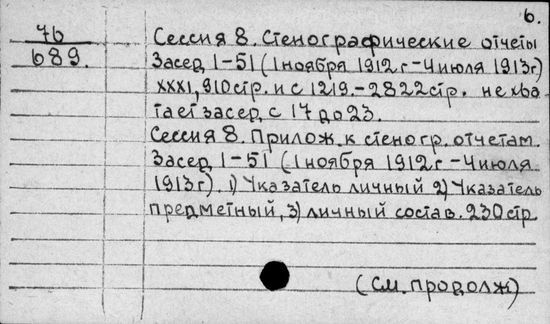 6.
76
689.
Сессия 8. Стенографические отчеты
Засед 1-51 (1 ноября 1912 г-4 июля 1913г)
XXXI, 910 стр. и с 1219.-2822 стр. не хва
тает засед с 17 до 23.
Сессия 8. Прилож. к стеногр. отчетам.
Засед 1-51 (1 ноября 1912 г-4 июля
1913г). 1) Указатель личный 2) Указатель
предметный, 3) личный состав. 230 стр
(См. продолж)